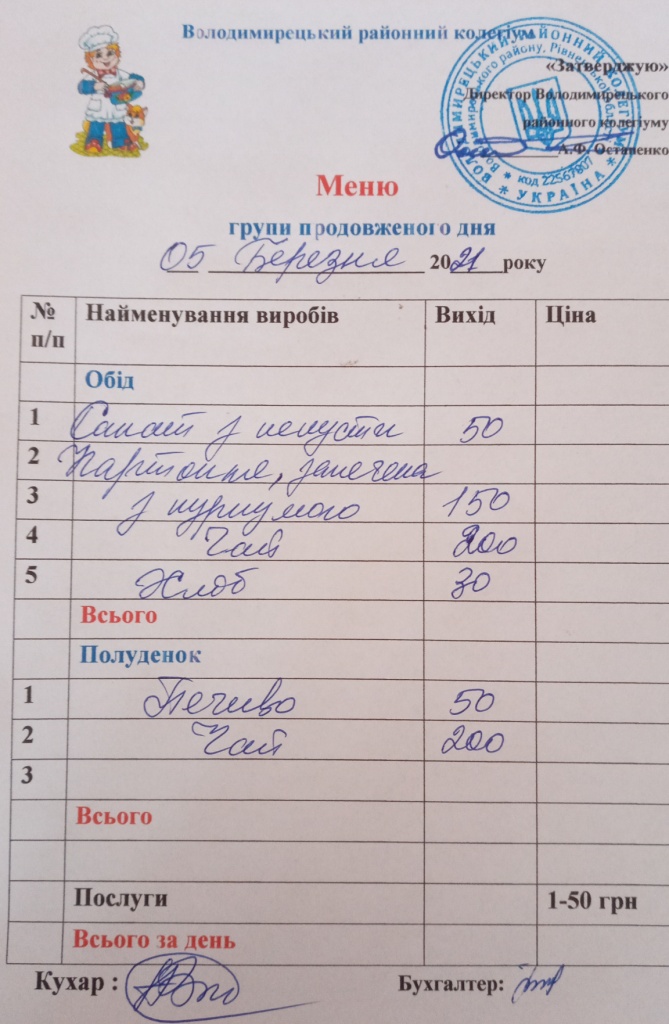 Володимирецький районний колегіум
«Затверджую»
Директор Володимирецького
районного колегіуму
А.Ф. Остапенко
код 22567807
УКРАЇНА
Меню
групи продовженого дня
05 Березня 2021 року
№ п/п Найменування виробів Вихід Ціна
Обід
1 Салат з капусти 50
2 Картопля, запечена
3 з куркумою 150
4 Чай 200
5 Хліб 30
Всього
Полуденок
1 Печиво 50
2 Чай 200
3
Всього
Послуги 1-50 грн
Всього за день
Кухар : Бухгалтер: